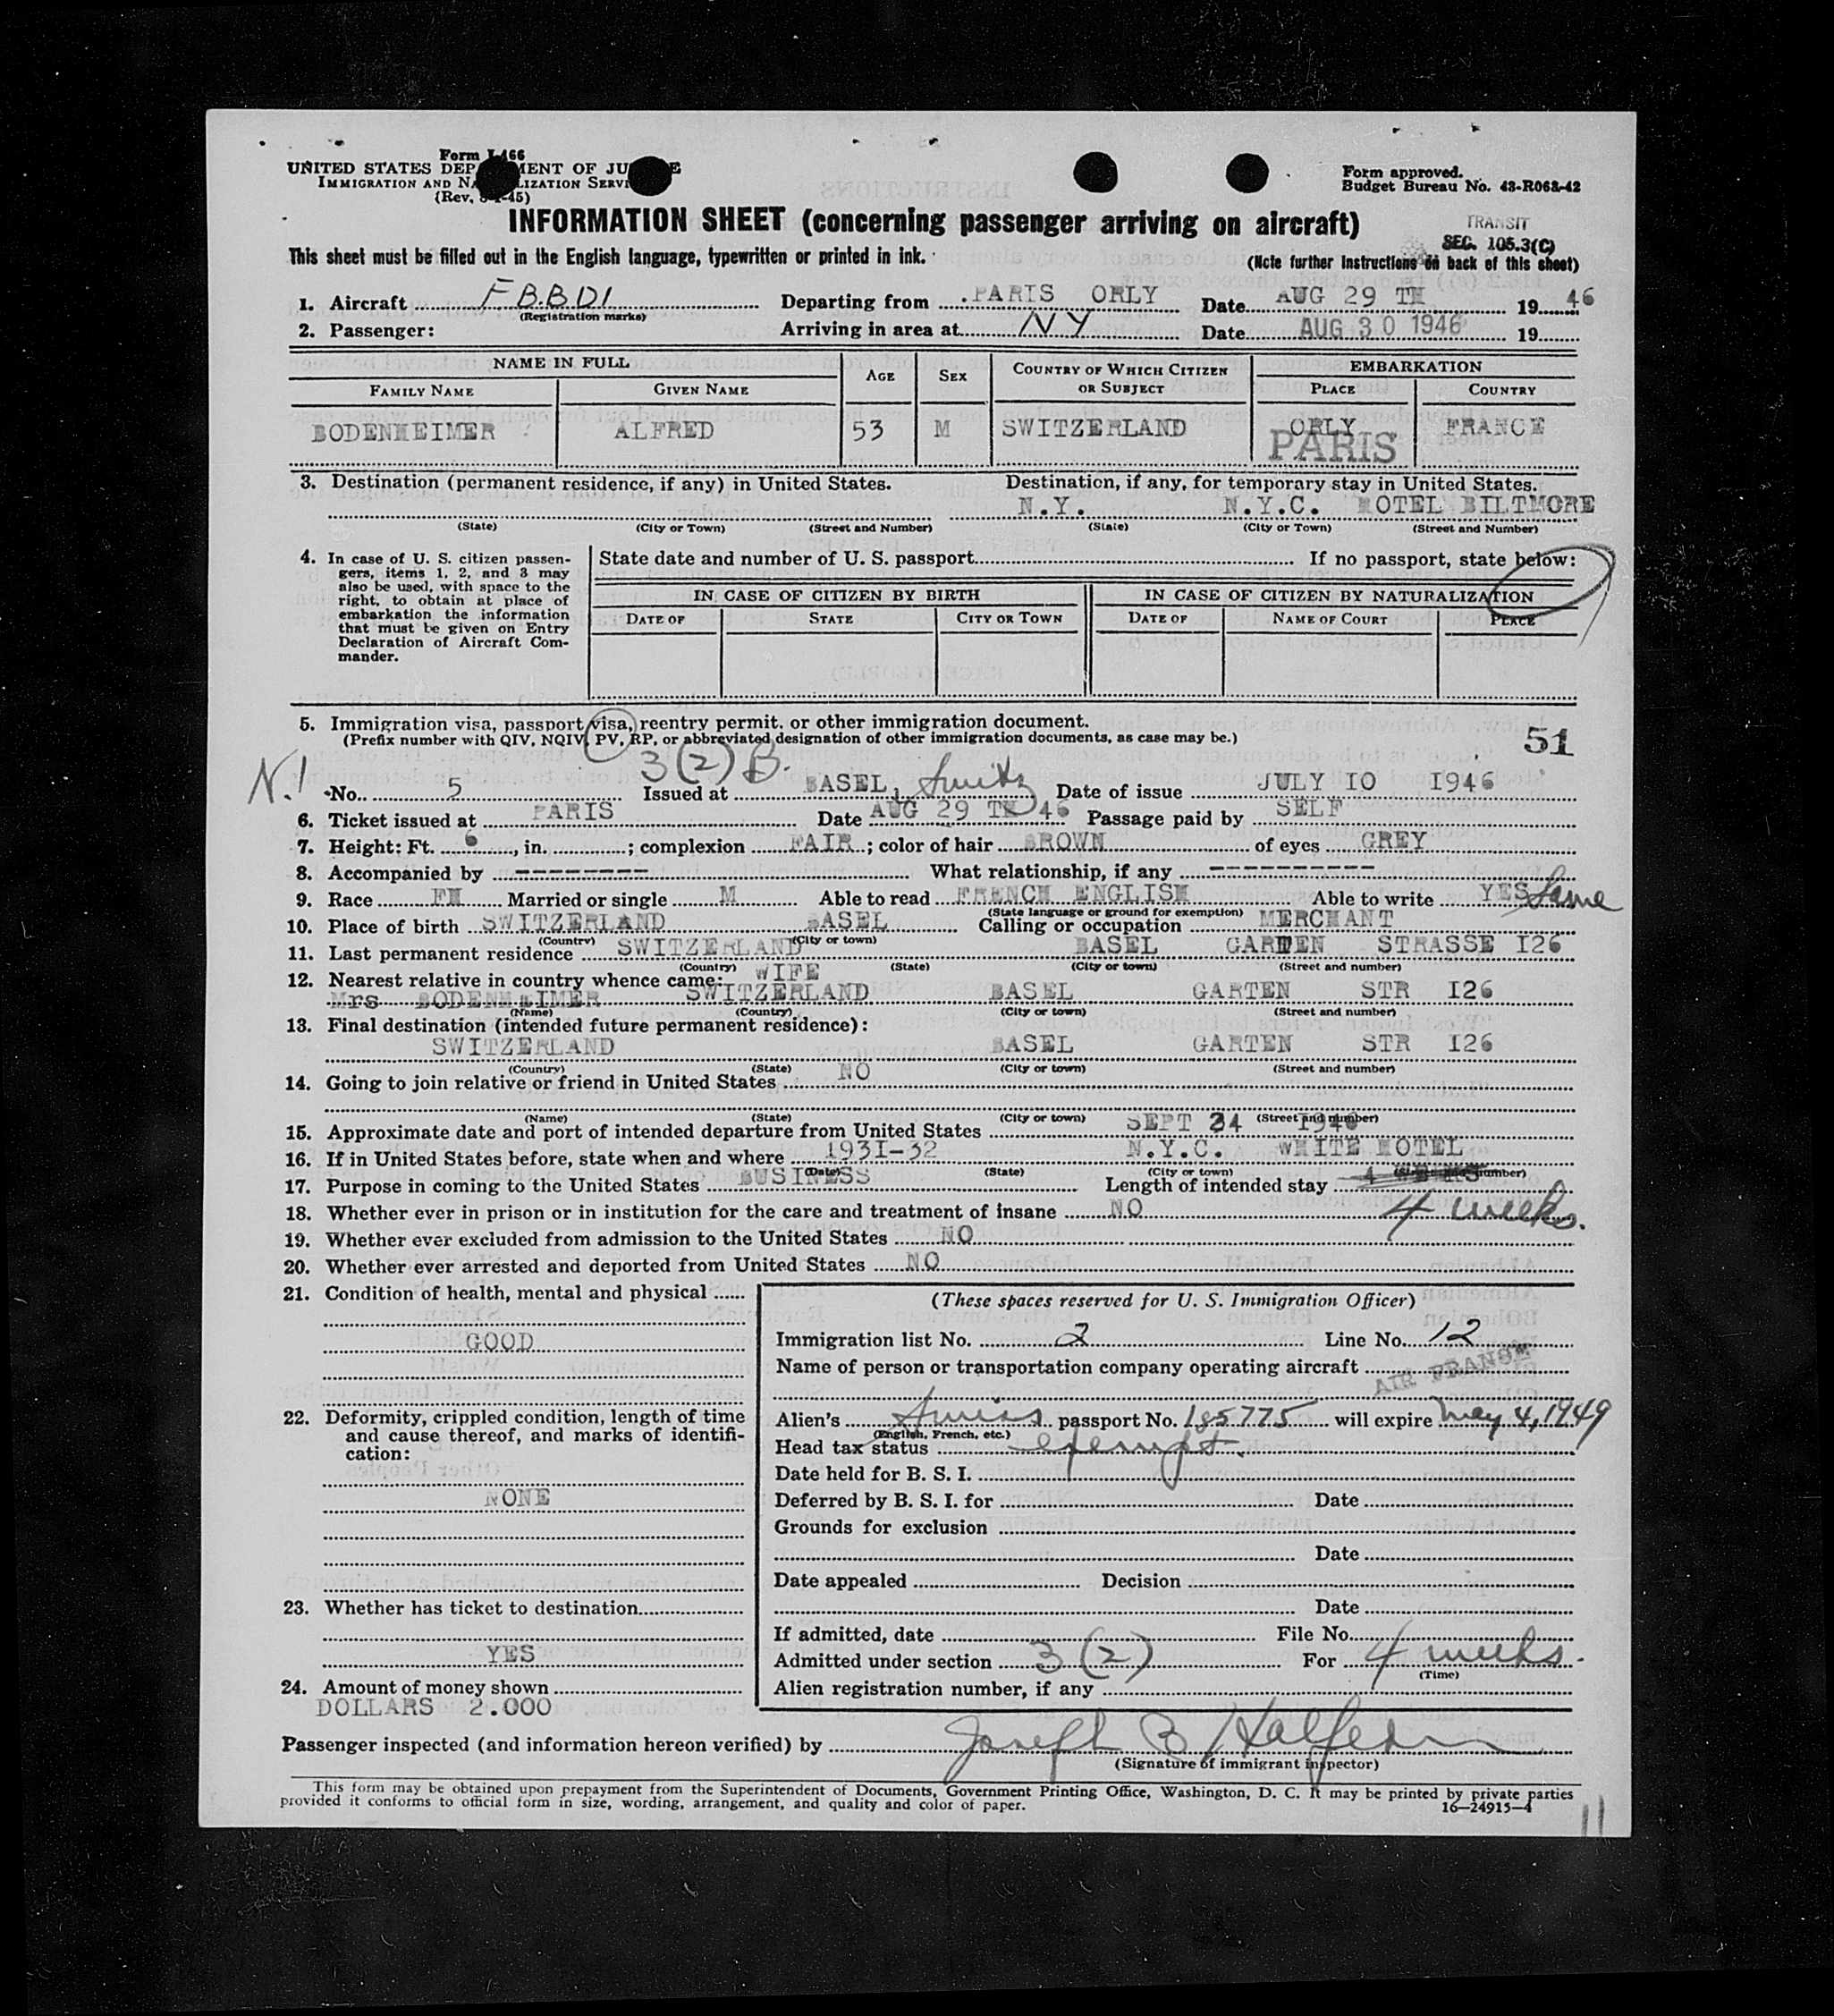 Form I-466
UNITED STATES DEP MENT OF JU E
IMMIGRATION AND NA LIZATION SERVI
(Rev. -45)
Form approved.
Budget Bureau No. 43-R068-42
INFORMATION SHEET (concerning passenger arriving on aircraft)
TRANSIT
SEC. 105.3(C)
This sheet must be filled out in the English language, typewritten or printed in ink.
(Note further instructions on back of this sheet)
1. Aircraft F B.B DI Departing from PARIS ORLY Date AUG 29 TH 1946
(Registration marks)
2. Passenger: Arriving in area at NY Date AUG 30 1946 19
NAME IN FULL AGE SEX COUNTRY OF WHICH CITIZEN OR SUBJECT EMBARKATION
FAMILY NAME GIVEN NAME PLACE COUNTRY
BODENHEIMER ALFRED 53 M SWITZERLAND ORLY FRANCE
PARIS
3. Destination (permanent residence, if any) in United States. Destination, if any, for temporary stay in United States.
N.Y. N.Y.C. HOTEL BILTMORE
(State) (City or Town) (Street and Number) (State) (City or Town) (Street and Number)
4. In case of U. S. citizen passen-
gers, items 1, 2, and 3 may
also be used, with space to the
right, to obtain at place of
embarkation the information
that must be given on Entry
Declaration of Aircraft Com-
mander.
State date and number of U. S. passport If no passport, state below:
IN CASE OF CITIZEN BY BIRTH IN CASE OF CITIZEN BY NATURALIZATION
DATE OF STATE CITY OR TOWN DATE OF NAME OF COURT PLACE
5. Immigration visa, passport visa, reentry permit, or other immigration document.
(Prefix number with QIV, NQIV, PV, RP, or abbreviated designation of other immigration documents, as case may be.)
51
N.! 3(2) B.
No. 5 Issued at BASEL, Switz Date of issue JULY I0 I946
6. Ticket issued at PARIS Date AUG 29 TH 46 Passage paid by SELF
7. Height: Ft. 6, in. ; complexion FAIR ; color of hair BROWN of eyes GREY
8. Accompanied by --------- What relationship, if any -----------
9. Race FH Married or single M Able to read FRENCH ENGLISH Able to write YES Same
(State language or ground for exemption)
10. Place of birth SWITZERLAND BASEL Calling or occupation MERCHANT
(Country) (City or town)
11. Last permanent residence SWITZERLAND BASEL GARTEN STRASSE I26
(Country) (State) (City or town) (Street and number)
12. Nearest relative in country whence came: WIFE
Mrs BODENHEIMER SWITZERLAND BASEL GARTEN STR I26
(Name) (Country) (City or town) (Street and number)
13. Final destination (intended future permanent residence):
SWITZERLAND BASEL GARTEN STR I26
(Country) (State) (City or town) (Street and number)
14. Going to join relative or friend in United States NO
(Name) (State) (City or town) (Street and number)
15. Approximate date and port of intended departure from United States SEPT 24 1946
16. If in United States before, state when and where 193I-32 N.Y.C. WHITE HOTEL
(Date) (State) (City or town) (Street and number)
17. Purpose in coming to the United States BUSINESS Length of intended stay
4 weeks.
18. Whether ever in prison or in institution for the care and treatment of insane NO
19. Whether ever excluded from admission to the United States NO
20. Whether ever arrested and deported from United States NO
21. Condition of health, mental and physical
GOOD
22. Deformity, crippled condition, length of time
and cause thereof, and marks of identifi-
cation:
NONE
23. Whether has ticket to destination
YES
24. Amount of money shown
DOLLARS 2.000
(These spaces reserved for U. S. Immigration Officer)
Immigration list No. 2 Line No. 12
Name of person or transportation company operating aircraft
AIR FRANCE
Alien's Swiss passport No. 185775 will expire May 4, 1949
(English, French, etc.)
Head tax status exempt.
Date held for B. S. I.
Deferred by B. S. I. for Date
Grounds for exclusion
Date
Date appealed Decision
Date
If admitted, date File No.
Admitted under section 3(2) For 4 weeks.
(Time)
Alien registration number, if any
Passenger inspected (and information hereon verified) by Joseph B Halfern
(Signature of immigrant inspector)
This form may be obtained upon prepayment from the Superintendent of Documents, Government Printing Office, Washington, D. C. It may be printed by private parties
provided it conforms to official form in size, wording, arrangement, and quality and color of paper. 16—24915-4
11